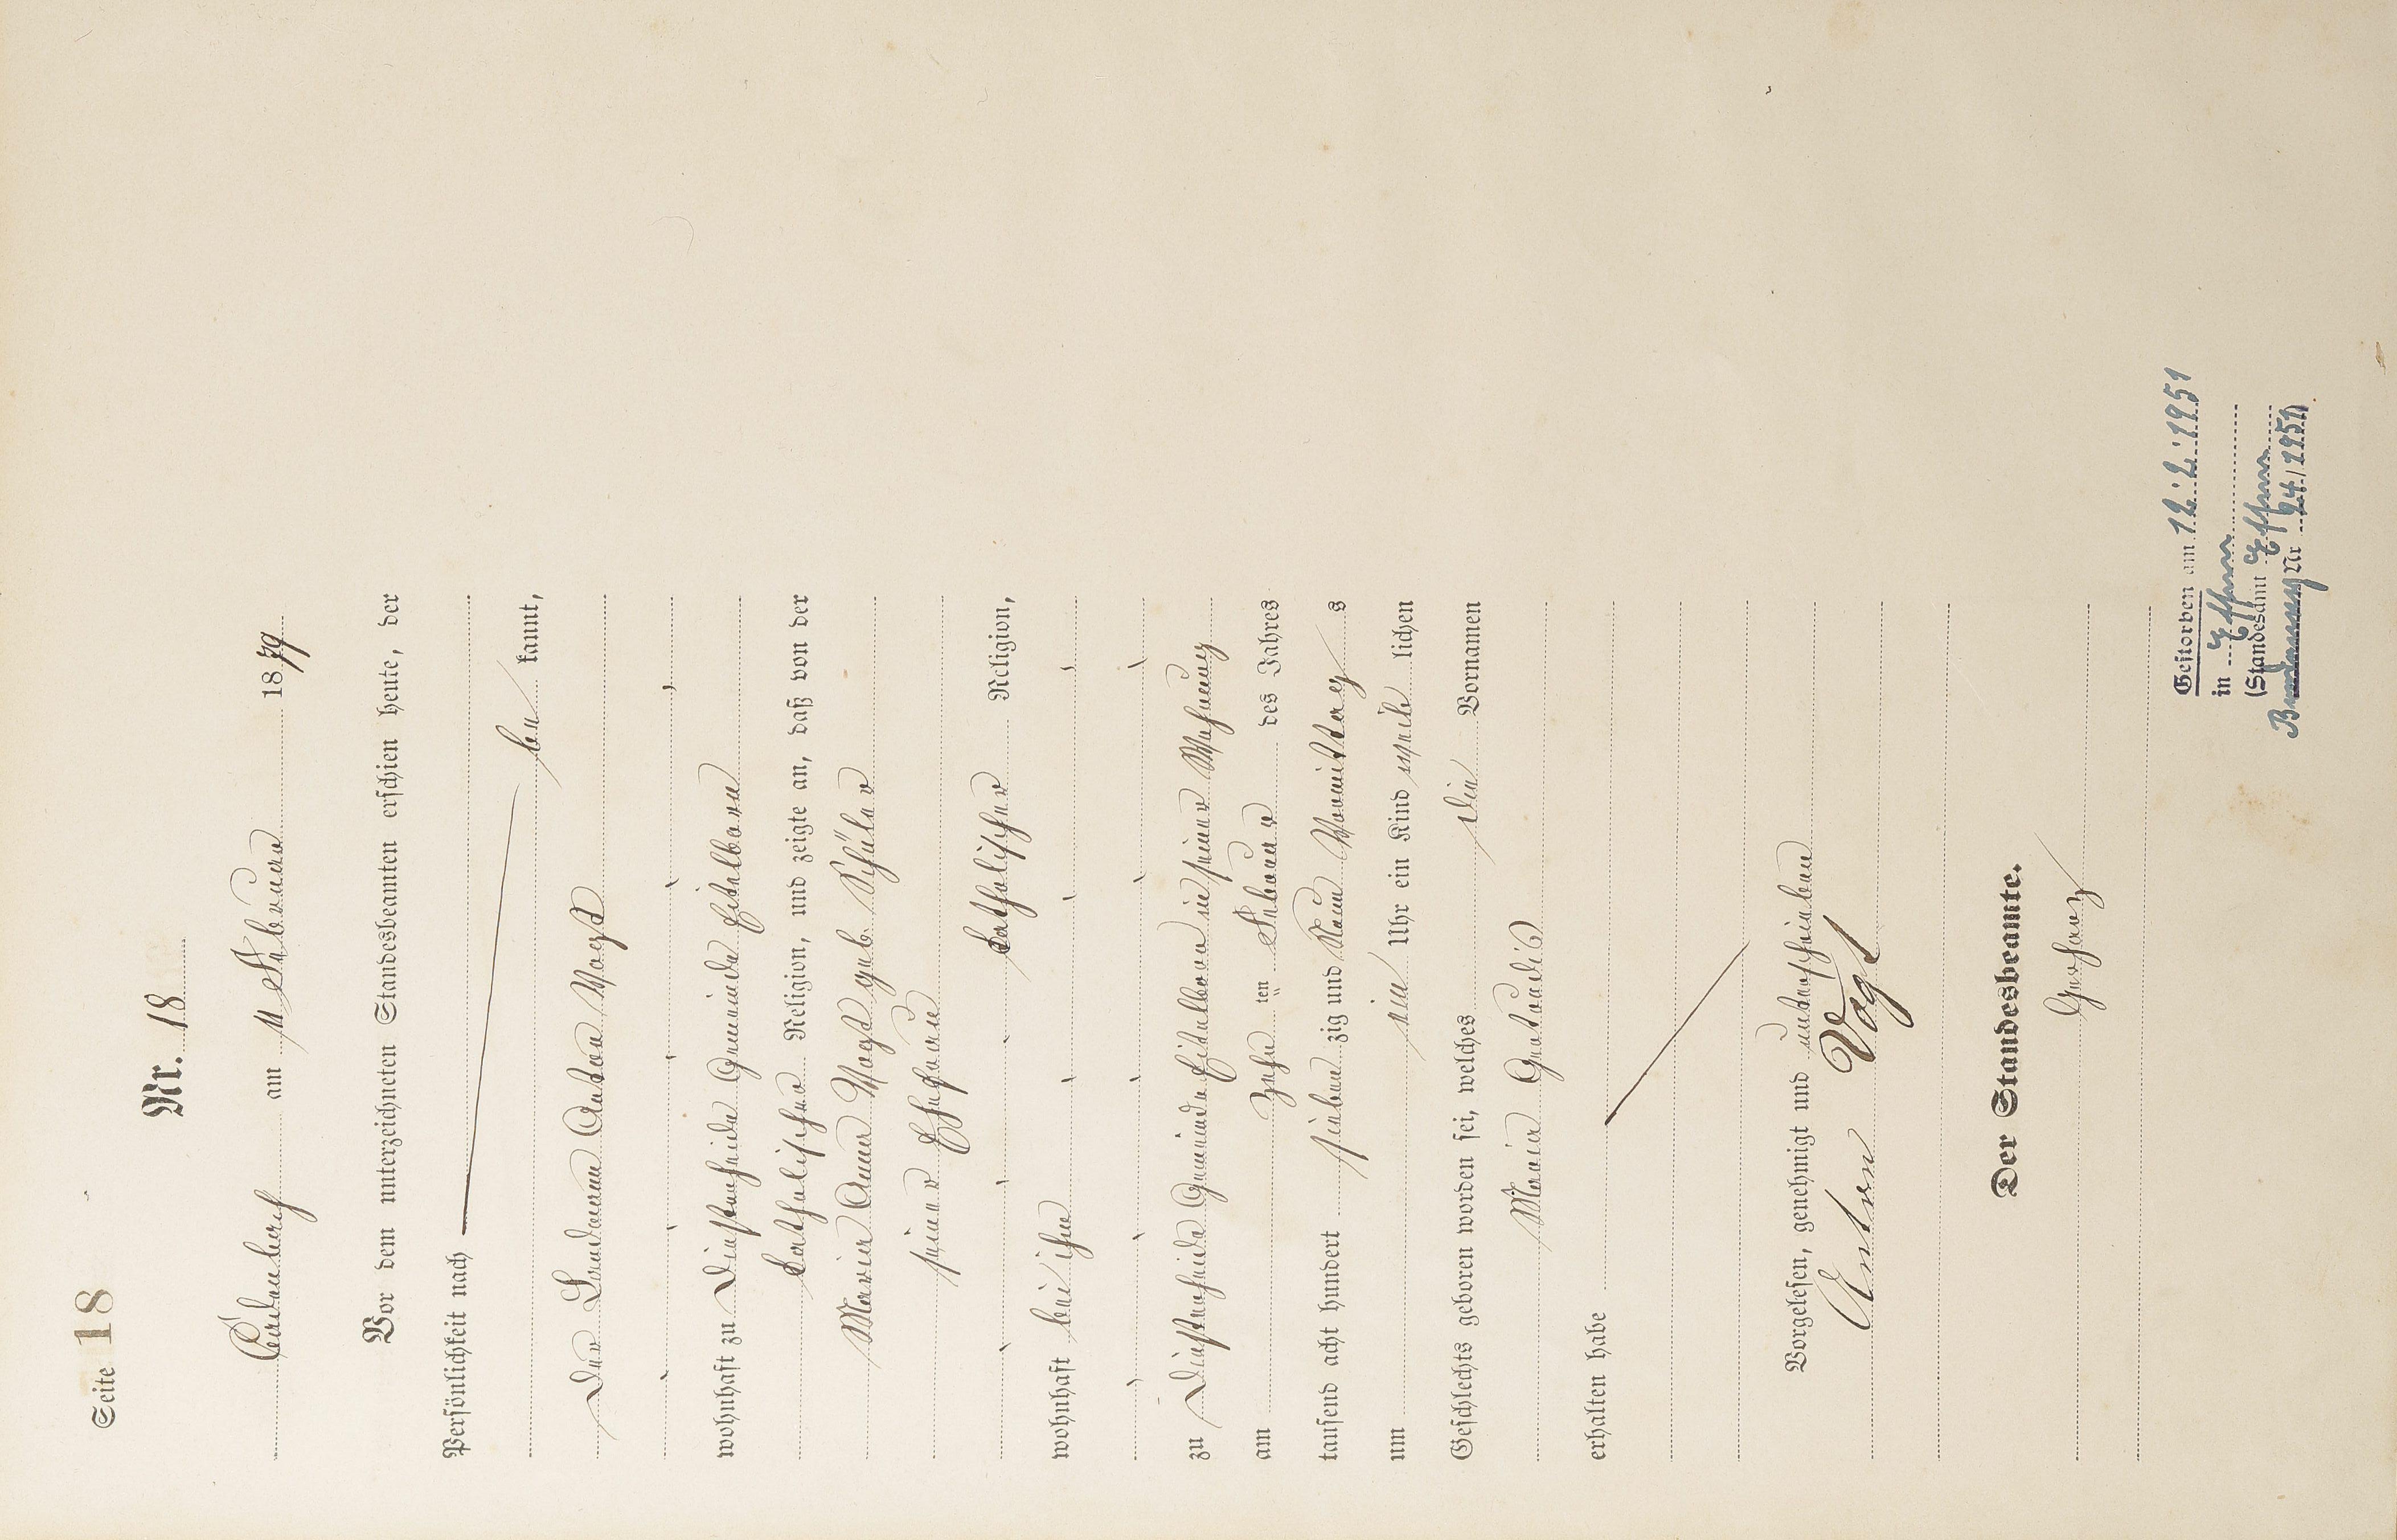 Seite 18
Nr. 18
am 11 Februar 1879
Vor dem unterzeichneten Standesbeamten erschien heute, der
Persönlichkeit nach
be kannt,
Der Landmann Anton Vogt
wohnhaft zu Gemeinde
katholischer Religion, und zeigte an, daß von der
Maria Anna Vogt geb. Schüler
seiner Ehefrau
katholischer Religion,
wohnhaft bei ihm
zu Gemeinde in seiner Wohnung
am Zehn ten Februar des Jahres
tausend acht hundert sieben zig und Neun Vormittag s
um ein Uhr ein Kind weib lichen
Geschlechts geboren worden sei, welches die Vornamen
Maria Gertrudis
erhalten habe
Vorgelesen, genehmigt und unterschrieben
Anton Vogt
Der Standesbeamte.
Gestorben am 12.2.1951
in Essen
(Standesamt Essen
Nr 24/1951)